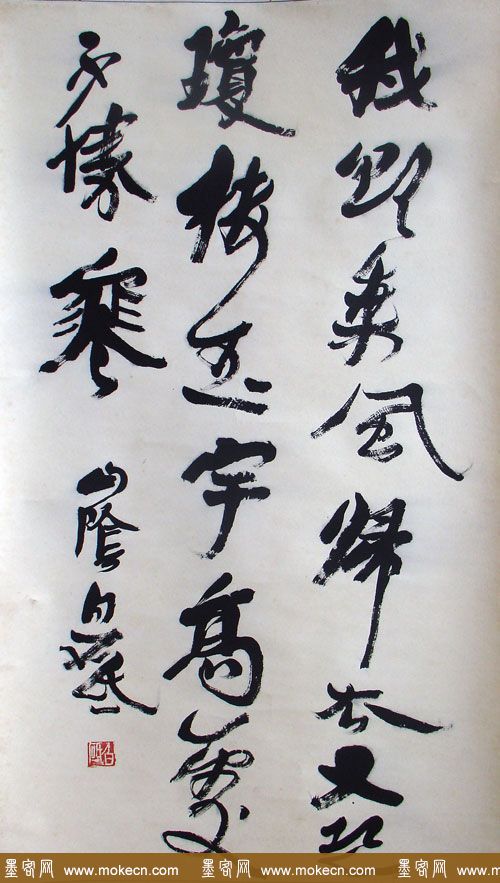 我欲乘風歸去又恐
瓊樓玉宇高處
不勝寒 山陰白砥
白砥
墨客网 www.mokecn.com 墨客网 www.mokecn.com 墨客网 www.m